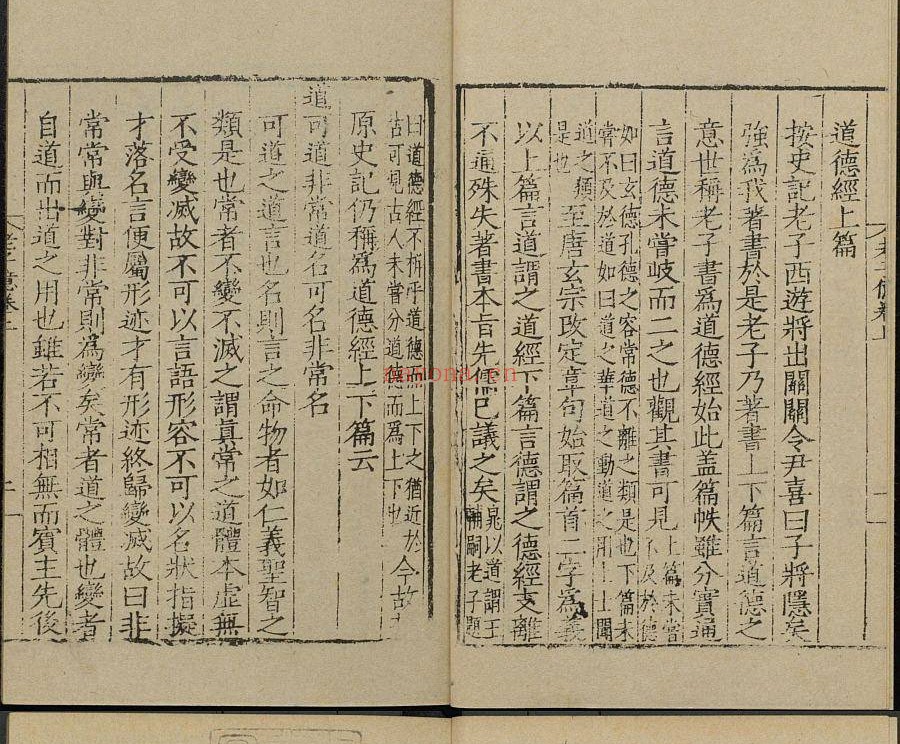 道德經上篇
按史記老子西遊將出關關令尹喜曰子將隱矣
強爲我著書於是老子乃著書上下篇言道德之
意世稱老子書爲道德經始此盖篇帙雖分實通
言道德未嘗岐而二之也觀其書可見上篇未嘗不及於德
如曰玄德孔德之容常德不離之類是也下篇未
嘗不及於道如曰道之華道之動道之用上士聞
道之類是也至唐玄宗改定章句始取篇首二字爲義
以上篇言道謂之道經下篇言德謂之德經支離
不通殊失著書本旨先儒已議之矣晁以道謂王輔嗣老子題
曰道德經不析乎道德而上下之猶近於
古可見古人未嘗分道德而爲上下也今故
原史記仍稱爲道德經上下篇云
道可道非常道名可名非常名
可道之道言也名則言之命物者如仁義聖智之
類是也常者不變不滅之謂眞常之道體本虛無
不受變滅故不可以言語形容不可以名狀指擬
才落名言便屬形迹才有形迹終歸變滅故曰非
常常與變對非常則爲變矣常者道之體也變者
自道而出道之用也雖若不可相無而賓主先後